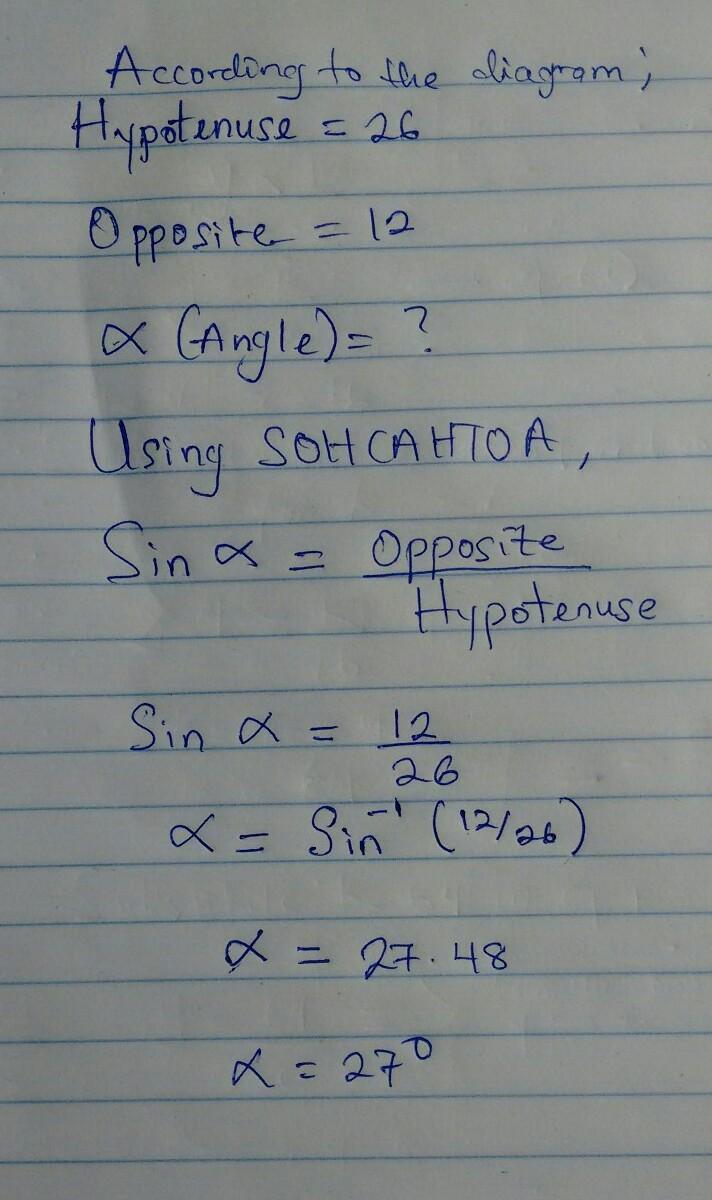 According to the diagram;
Hypotenuse = 26
Opposite = 12
α (Angle) = ?
Using SOHCAHTOA,
Sin α = Opposite
Hypotenuse
Sin α = 12
26
α = Sin⁻¹ (12/26)
α = 27.48
α = 27⁰